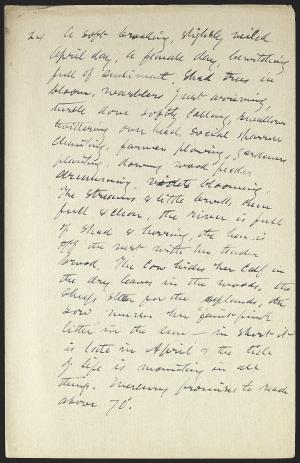 24 A soft brooding, slightly veiled
April day, a female day, bewitching
full of sentiment, Shad trees in
bloom, warblers just arriving,
turtle dove softly calling, swallows
twittering over head, social sparrow
chanting, farmer plowing, gardeners
planting, downy wood pecker
drumming, violets blooming,
The streams & little brooks run
full & clear, the river is full
of shad & herring, the hen is
off the nest with her tender
brood, The cow hides her calf in
the dry leaves in the woods, the
sheep for the uplands, the
sow nurses her faint-pink
litter in the sun — in short it
is late in April & the tide
of life is mounting in all
things. Mercury promises to reach
above 70°.